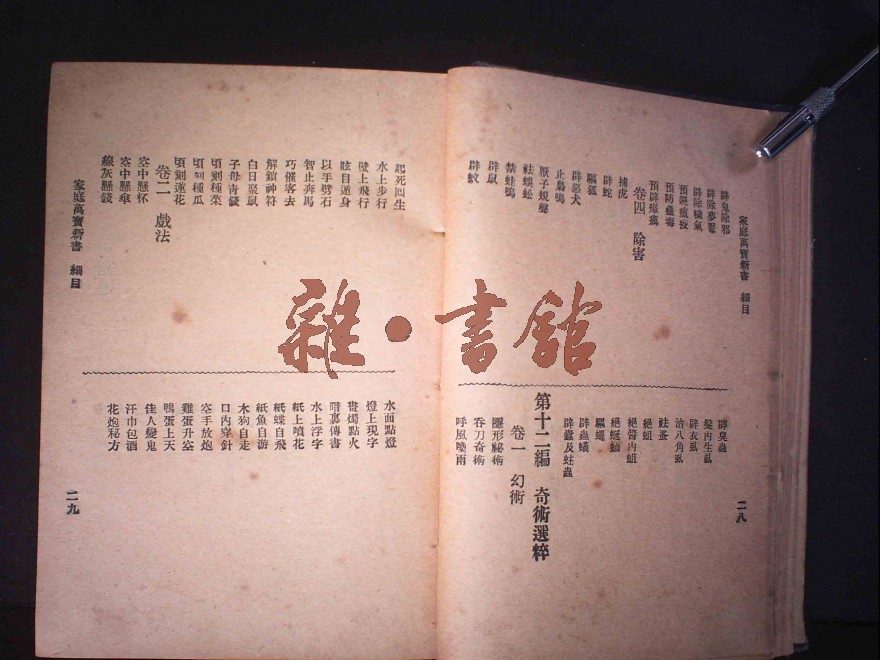 家庭萬寶新書 細目
辟鬼除邪
辟除夢魘
辟除穢氣
預避瘟疫
預防蠱毒
預辟瘴癘
卷四 除害
捕虎
辟蛇
驅狐
辟惡犬
止梟鳴
厭子規聲
祛蜈蚣
禁蛙鳴
辟鼠
辟蚊
辟臭蟲
髮內生虱
辟衣虱
治八角虱
祛蚤
絕蛆
絕醬內蛆
絕蜒蚰
驅蠅
辟蟲蟻
辟蠹及蛀蟲
第十二編 奇術選粹
卷一 幻術
隱形秘術
吞刀奇術
呼風喚雨
二八
起死回生
水上步行
陸上飛行
眩目遁身
以手劈石
智止奔馬
巧催客去
解錧神符
白日聚鼠
子母青錢
頃刻種菜
頃刻種瓜
頃刻蓮花
卷二 戲法
空中懸杯
空中懸傘
線灰懸錢
家庭萬寶新書 細目
水面點燈
燈上現字
書燭點火
暗裏傳書
水上浮字
紙上噴花
紙蝶自飛
紙魚自游
木狗自走
口內穿針
空手放炮
雞蛋升空
鴨蛋上天
佳人變鬼
汗巾包酒
花炮秘方
二九
雜·書館